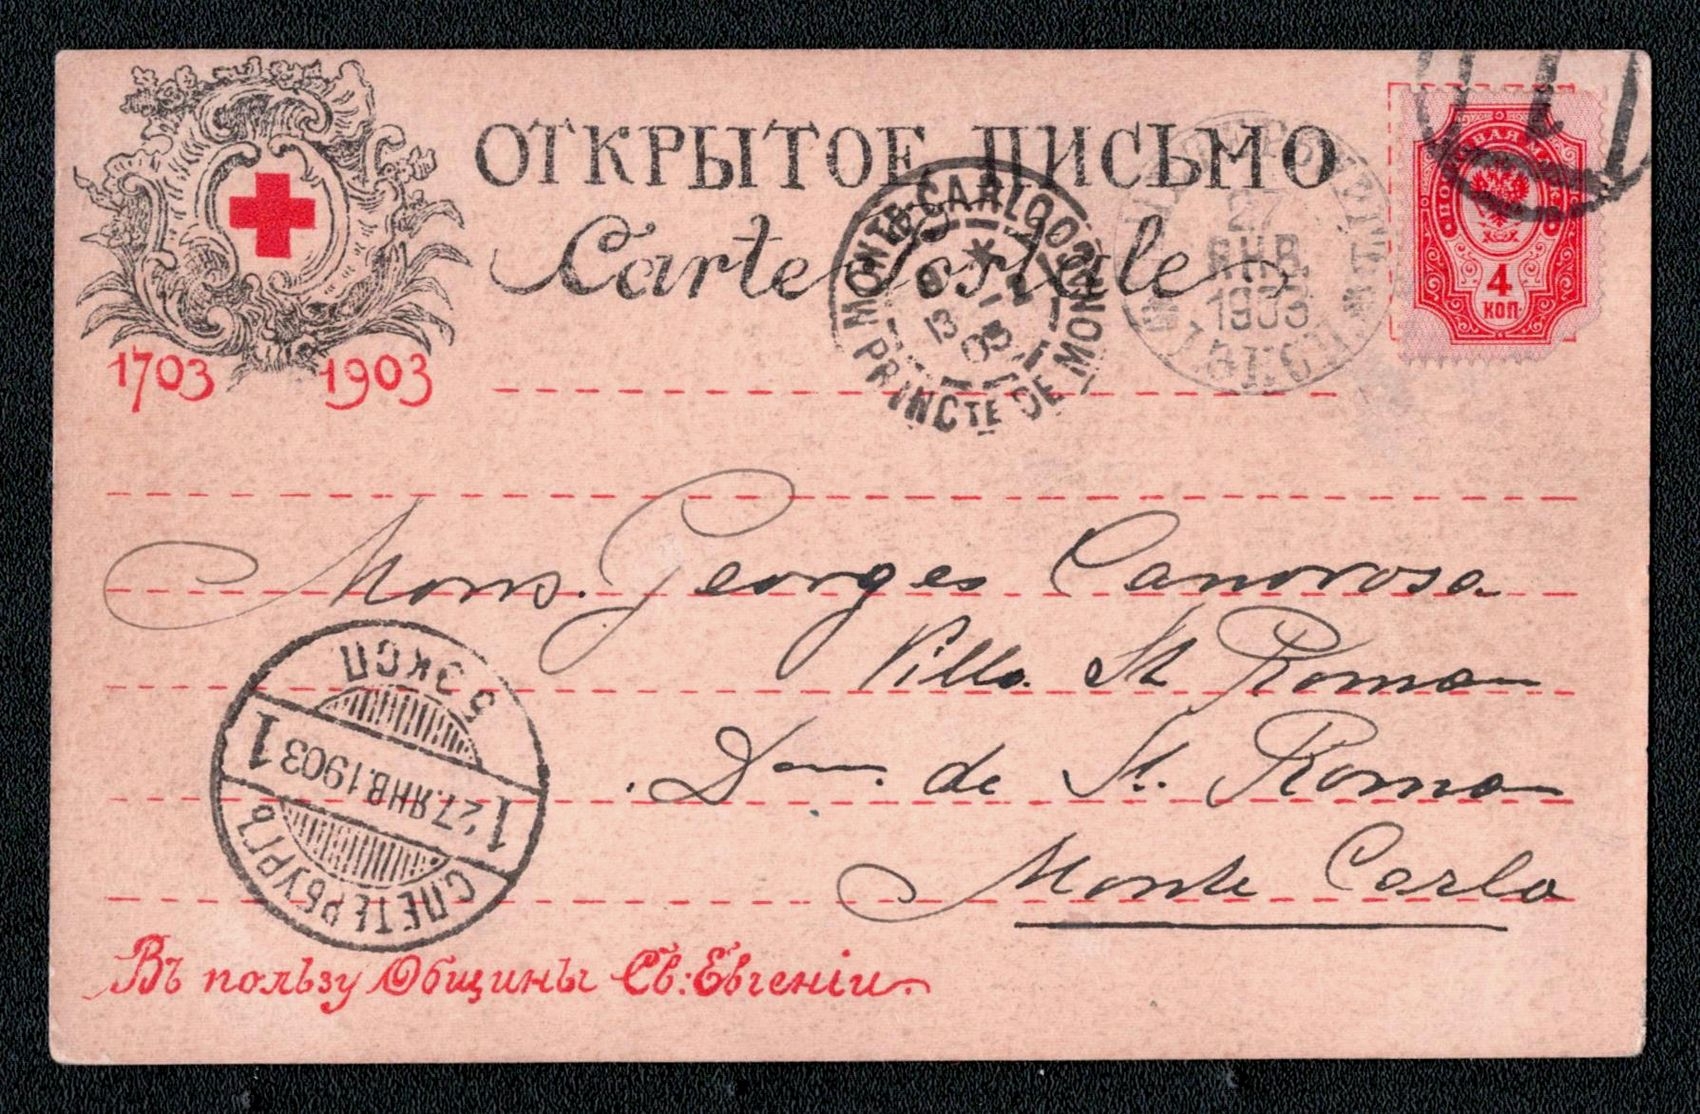 ОТКРЫТОЕ ПИСЬМО
Carte Postale
1703 1903
MONTE-CARLO
PRINCTE DE MON
27
ЯНВ.
1903
ПОЧТОВАЯ МАРКА
4
КОП.
Mons. Georges Canorosa
Villa St Roman
de St. Roman
Monte Carlo
5 ЭКСП
1 27.ЯНВ.1903 1
СПЕТЕРБУРГЪ
Въ пользу Общины Св: Евгеніи.